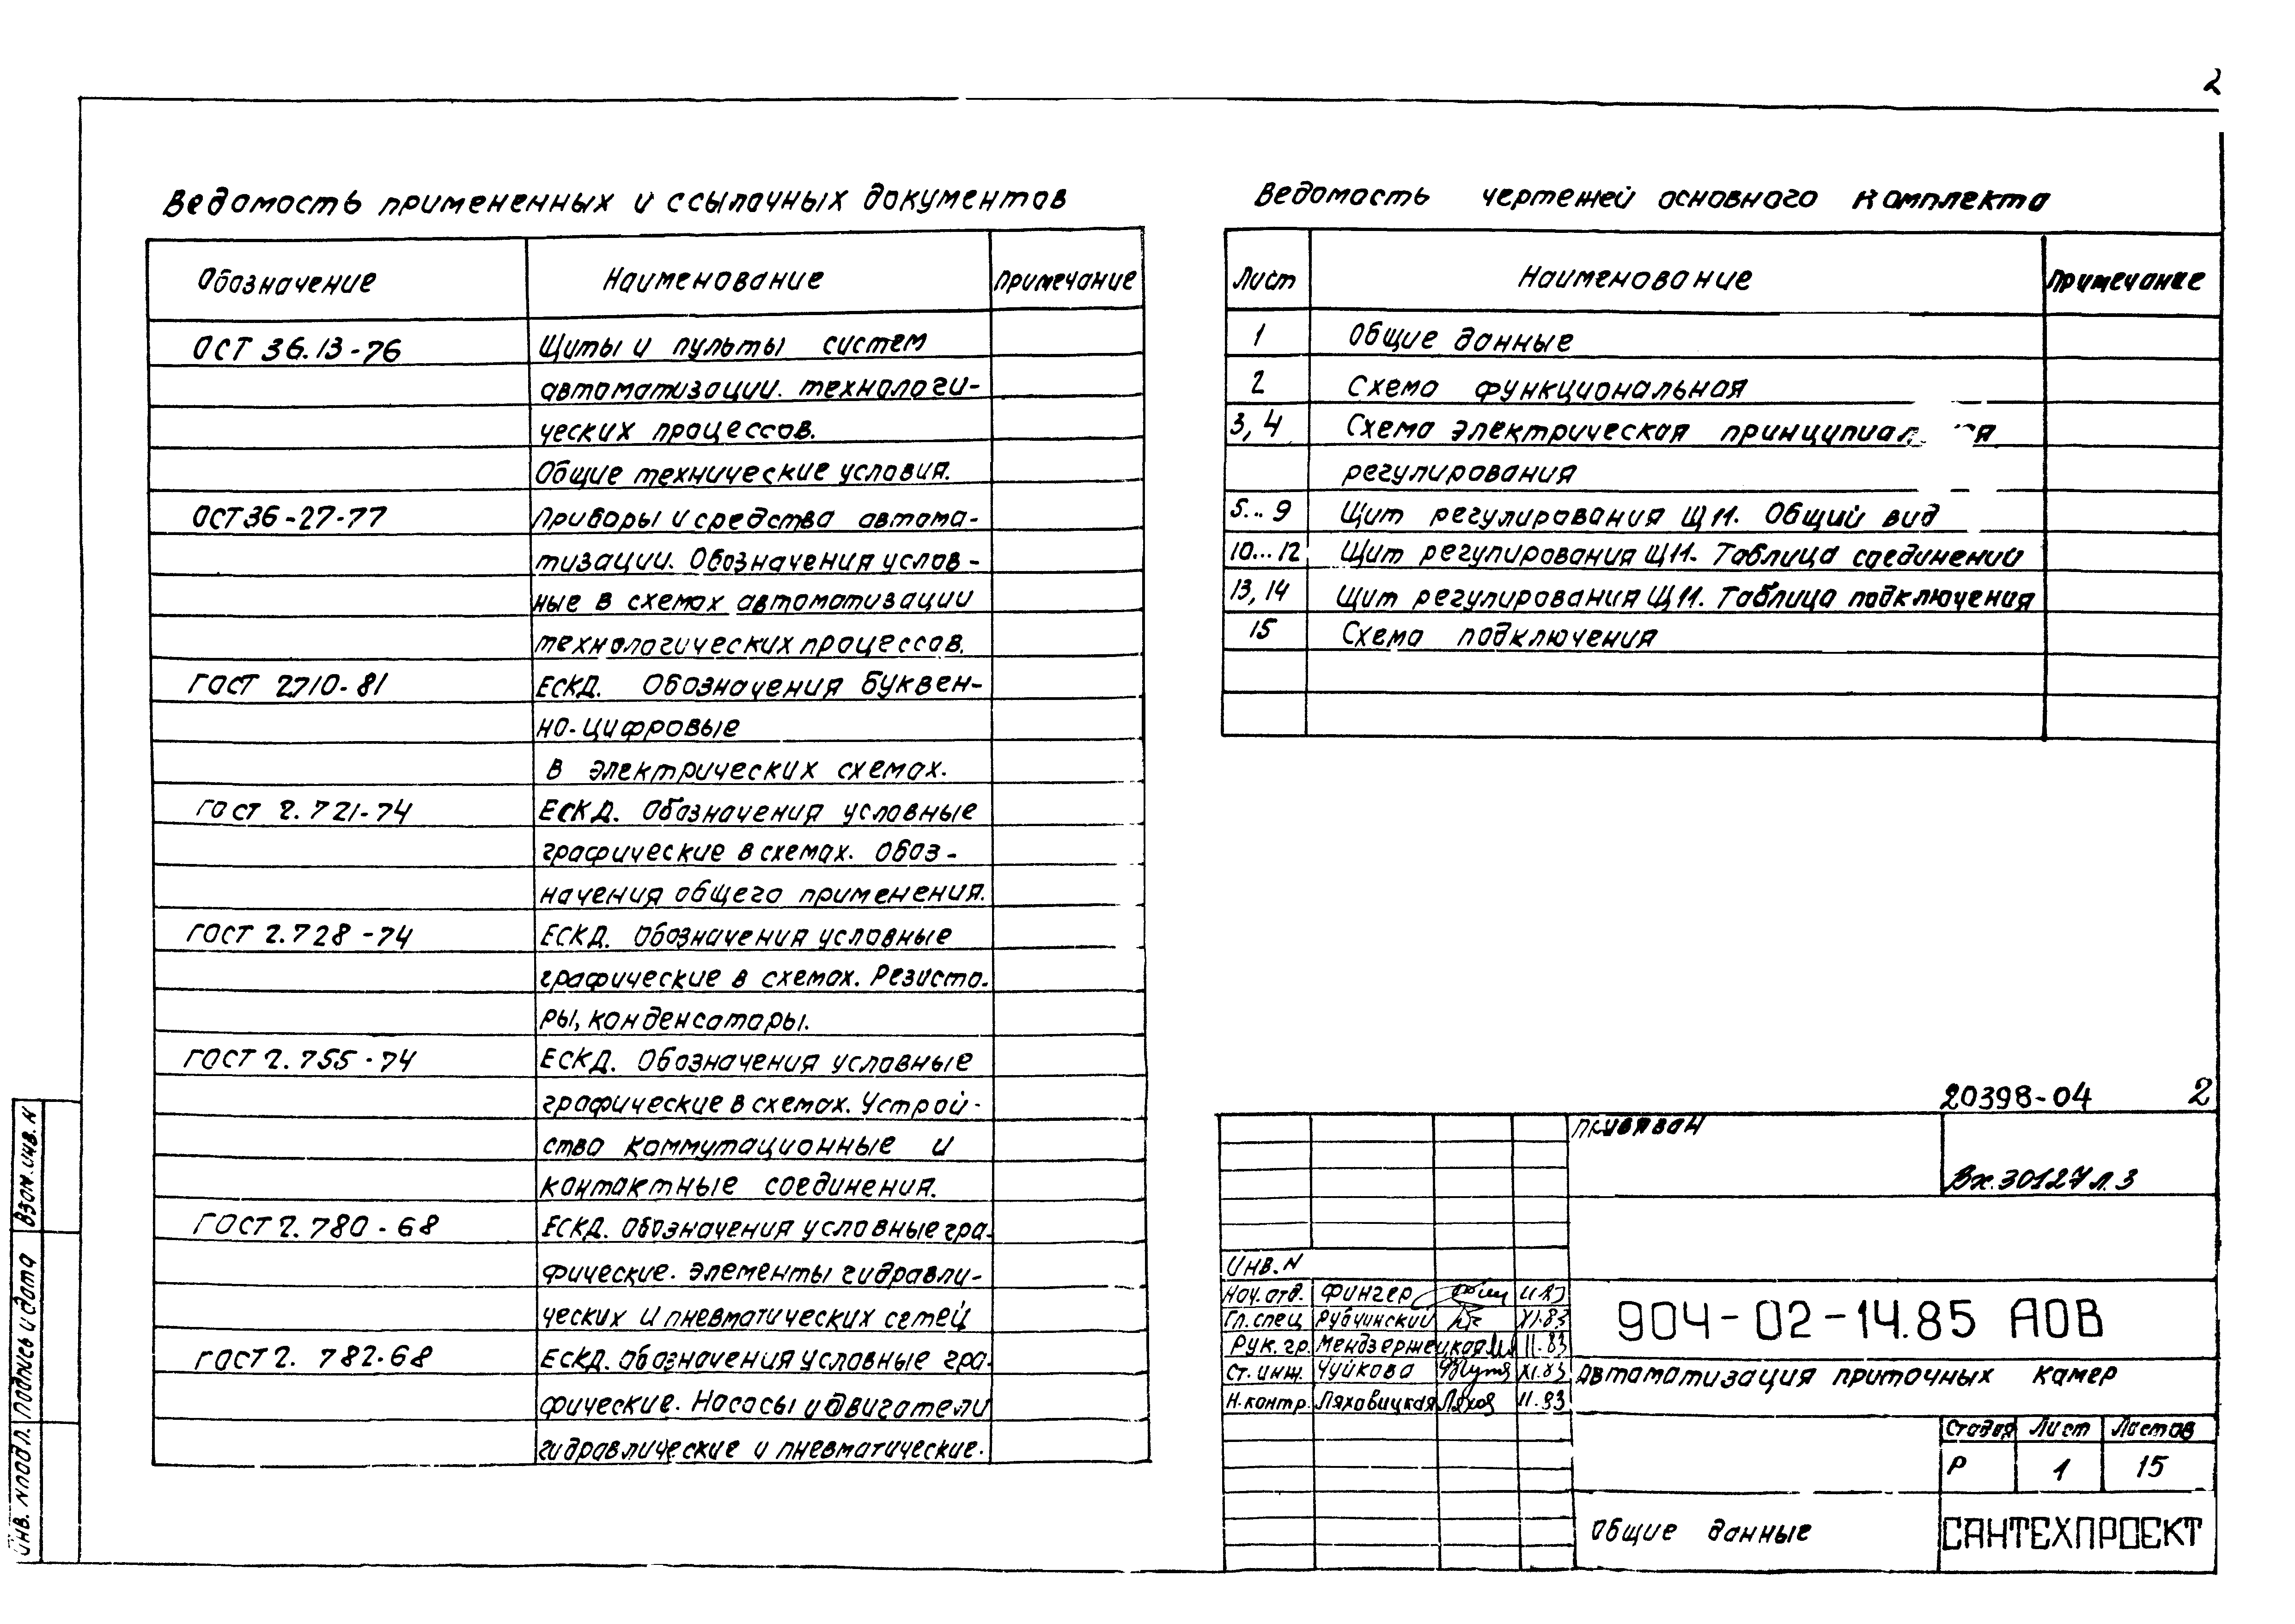 2
Ведомость примененных и ссылочных документов
Обозначение Наименование Примечание
ОСТ 36.13-76 Щиты и пульты систем
автоматизации. технологи-
ческих процессов.
Общие технические условия.
ОСТ 36-27-77 Приборы и средства автома-
тизации. Обозначения услов-
ные в схемах автоматизации
технологических процессов.
ГОСТ 2710-81 ЕСКД. Обозначения буквен-
но-цифровые
в электрических схемах.
ГОСТ 2.721-74 ЕСКД. Обозначения условные
графические в схемах. Обоз-
начения общего применения.
ГОСТ 2.728-74 ЕСКД. Обозначения условные
графические в схемах. Резисто-
ры, конденсаторы.
ГОСТ 2.755-74 ЕСКД. Обозначения условные
графические в схемах. Устрой-
ство коммутационные и
контактные соединения.
ГОСТ 2.780-68 ЕСКД. Обозначения условные гра-
фические. Элементы гидравли-
ческих и пневматических сетей
ГОСТ 2. 782-68 ЕСКД. Обозначения условные гра-
фические. Насосы и двигатели
гидравлические и пневматические.
Ведомость чертежей основного комплекта
Лист Наименование Примечание
1 Общие данные
2 Схема функциональная
3, 4 Схема электрическая
регулирования
5...9 Щит регулирования Щ11. Общий вид
10...12 Щит регулирования Щ11. Таблица соединений
13, 14 Щит регулирования Щ11. Таблица подключения
15 Схема подключения
20398-04 2
Привязан
Вх.30127л.3
Инв.N
Нач. отд. Фингер
Гл. спец Рубчинский XI.83
Рук. гр. Мендзержецкая 11.83
Ст. инж. Чуйкова XI.83
Н. контр. Ляховицкая Ляхов 11.83
904-02-14.85 АОВ
Автоматизация приточных камер
Стадия Лист Листов
Р 1 15
Общие данные САНТЕХПРОЕКТ
Взам. инв. N
Подпись и дата
Инв. N подл.